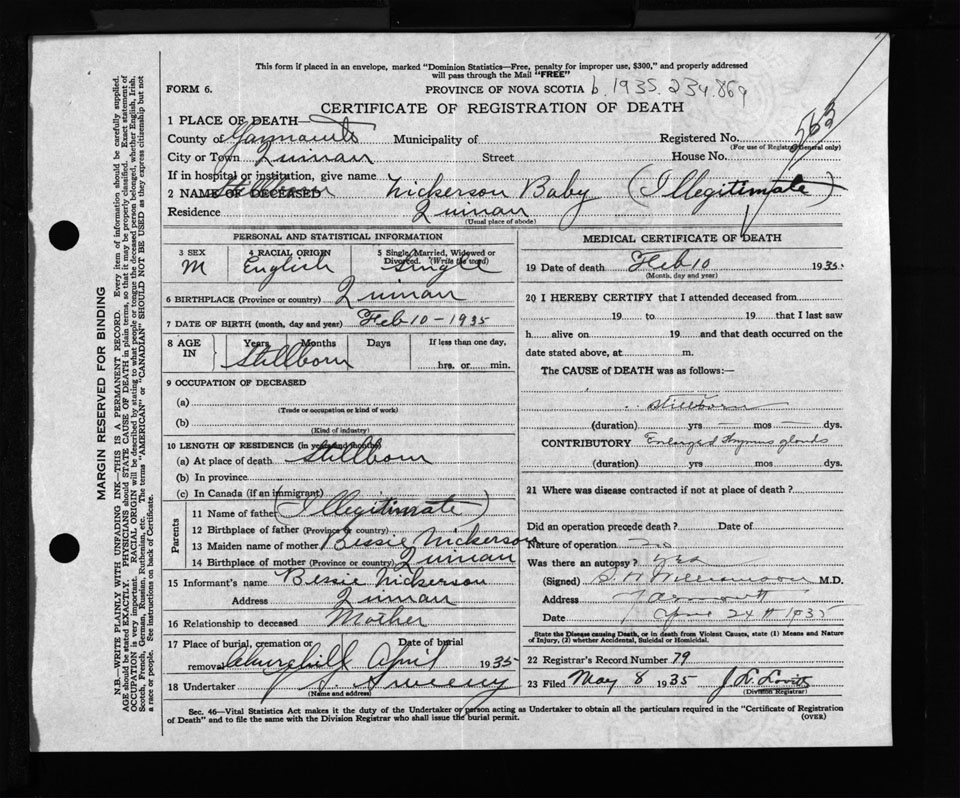 This form if placed in an envelope, marked "Dominion Statistics—Free, penalty for improper use, $300," and properly addressed
will pass through the Mail "FREE"
FORM 6.
PROVINCE OF NOVA SCOTIA b. 1935. 234.869
CERTIFICATE OF REGISTRATION OF DEATH
563
1 PLACE OF DEATH—
County of Yarmouth Municipality of Registered No.
(For use of Registrar General only)
City or Town Quinan Street House No.
If in hospital or institution, give name
2 NAME OF DECEASED Stillborn Nickerson Baby (Illegitimate)
Residence Quinan
(Usual place of abode)
PERSONAL AND STATISTICAL INFORMATION
3 SEX 4 RACIAL ORIGIN 5 Single, Married, Widowed or
Divorced. (Write the word)
M English Single
6 BIRTHPLACE (Province or country) Quinan
7 DATE OF BIRTH (month, day and year) Feb 10 - 1935
8 AGE IN Years Months Days If less than one day,
Stillborn hrs. or min.
9 OCCUPATION OF DECEASED
(a)
(Trade or occupation or kind of work)
(b)
(Kind of industry)
10 LENGTH OF RESIDENCE (in years and months)
(a) At place of death Stillborn
(b) In province
(c) In Canada (if an immigrant)
Parents
11 Name of father (Illegitimate)
12 Birthplace of father (Province or country)
13 Maiden name of mother Bessie Nickerson
14 Birthplace of mother (Province or country) Quinan
15 Informant's name Bessie Nickerson
Address Quinan
16 Relationship to deceased Mother
17 Place of burial, cremation or removal Date of burial
Churchill April 1935
18 Undertaker J. S. Sweeny
(Name and address)
MEDICAL CERTIFICATE OF DEATH
19 Date of death Feb 10 1935
(Month, day and year)
20 I HEREBY CERTIFY that I attended deceased from
19 to 19 that I last saw
h alive on 19 and that death occurred on
date stated above, at m.
The CAUSE of DEATH was as follows:—
Stillborn
(duration) yrs mos dys.
CONTRIBUTORY Enlarged thymus glands
(duration) yrs mos dys.
21 Where was disease contracted if not at place of death?
Did an operation precede death? Date of
Nature of operation no
Was there an autopsy? yes
(Signed) S. W. Williamson M.D.
Address Yarmouth
Date April 24th 1935
State the Disease causing Death, or in death from Violent Causes, state (1) Means and Nature
of Injury, (2) whether Accidental, Suicidal or Homicidal.
22 Registrar's Record Number 79
23 Filed May 8 1935 J. L. Lovitt
(Division Registrar)
Sec. 46—Vital Statistics Act makes it the duty of the Undertaker or person acting as Undertaker to obtain all the particulars required in the "Certificate of Registration
of Death" and to file the same with the Division Registrar who shall issue the burial permit.
(OVER)
MARGIN RESERVED FOR BINDING
N.B.—WRITE PLAINLY, WITH UNFADING INK—THIS IS A PERMANENT RECORD. Every item of information should be carefully supplied.
AGE should be stated EXACTLY. PHYSICIANS should STATE CAUSE OF DEATH in plain terms, so that it may be properly classified. Exact statement of
OCCUPATION is very important. RACIAL ORIGIN will be described by stating to what people or tongue the deceased person belonged, whether English, Irish,
Scotch, French, German, Russian, Ruthenian, etc. The terms "AMERICAN" or "CANADIAN" SHOULD NOT BE USED as they express citizenship but not
a race or people. See instructions on back of Certificate.